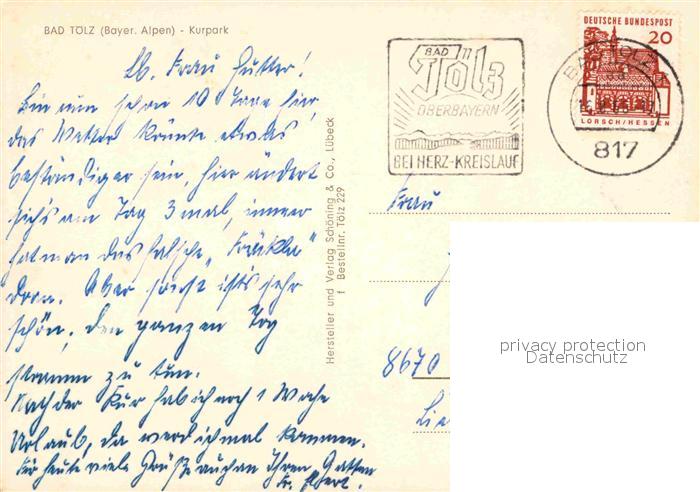 BAD TÖLZ (Bayer. Alpen) - Kurpark
Lb. Frau Hutter!
Bin nun schon 10 Tage hier,
das Wetter könnte etwas
beständiger sein, hier ändert
sich's am Tag 3 mal, immer
hat man das falsche „Fräckla"
dran. Aber sonst ist's sehr
schön, den ganzen Tag
stramm zu tun.
Nach der Kur hab ich noch 1 Woche
Urlaub, da werd ich mal kommen.
Für heute viele Grüße auch an Ihren Gatten
Fr. Ebert.
Hersteller und Verlag Schöning & Co., Lübeck
f Bestellnr. Tölz 229
BAD
Tölz
OBERBAYERN
BEI HERZ-KREISLAUF
DEUTSCHE BUNDESPOST
20
LORSCH/HESSEN
BAD TÖLZ
817
Frau
8670
privacy protection
Datenschutz